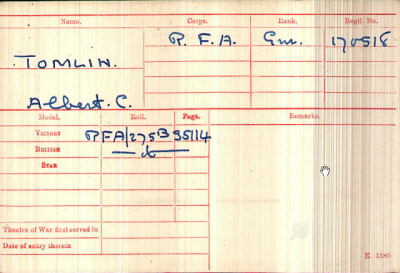 Name. Corps. Rank. Regtl. No.
R. F. A. Gnr. 170518
TOMLIN.
Albert. C.
Medal. Roll. Page. Remarks.
VICTORY RFA/275B 35114
BRITISH — do —
STAR
Theatre of War first served in
Date of entry therein
K. 1380